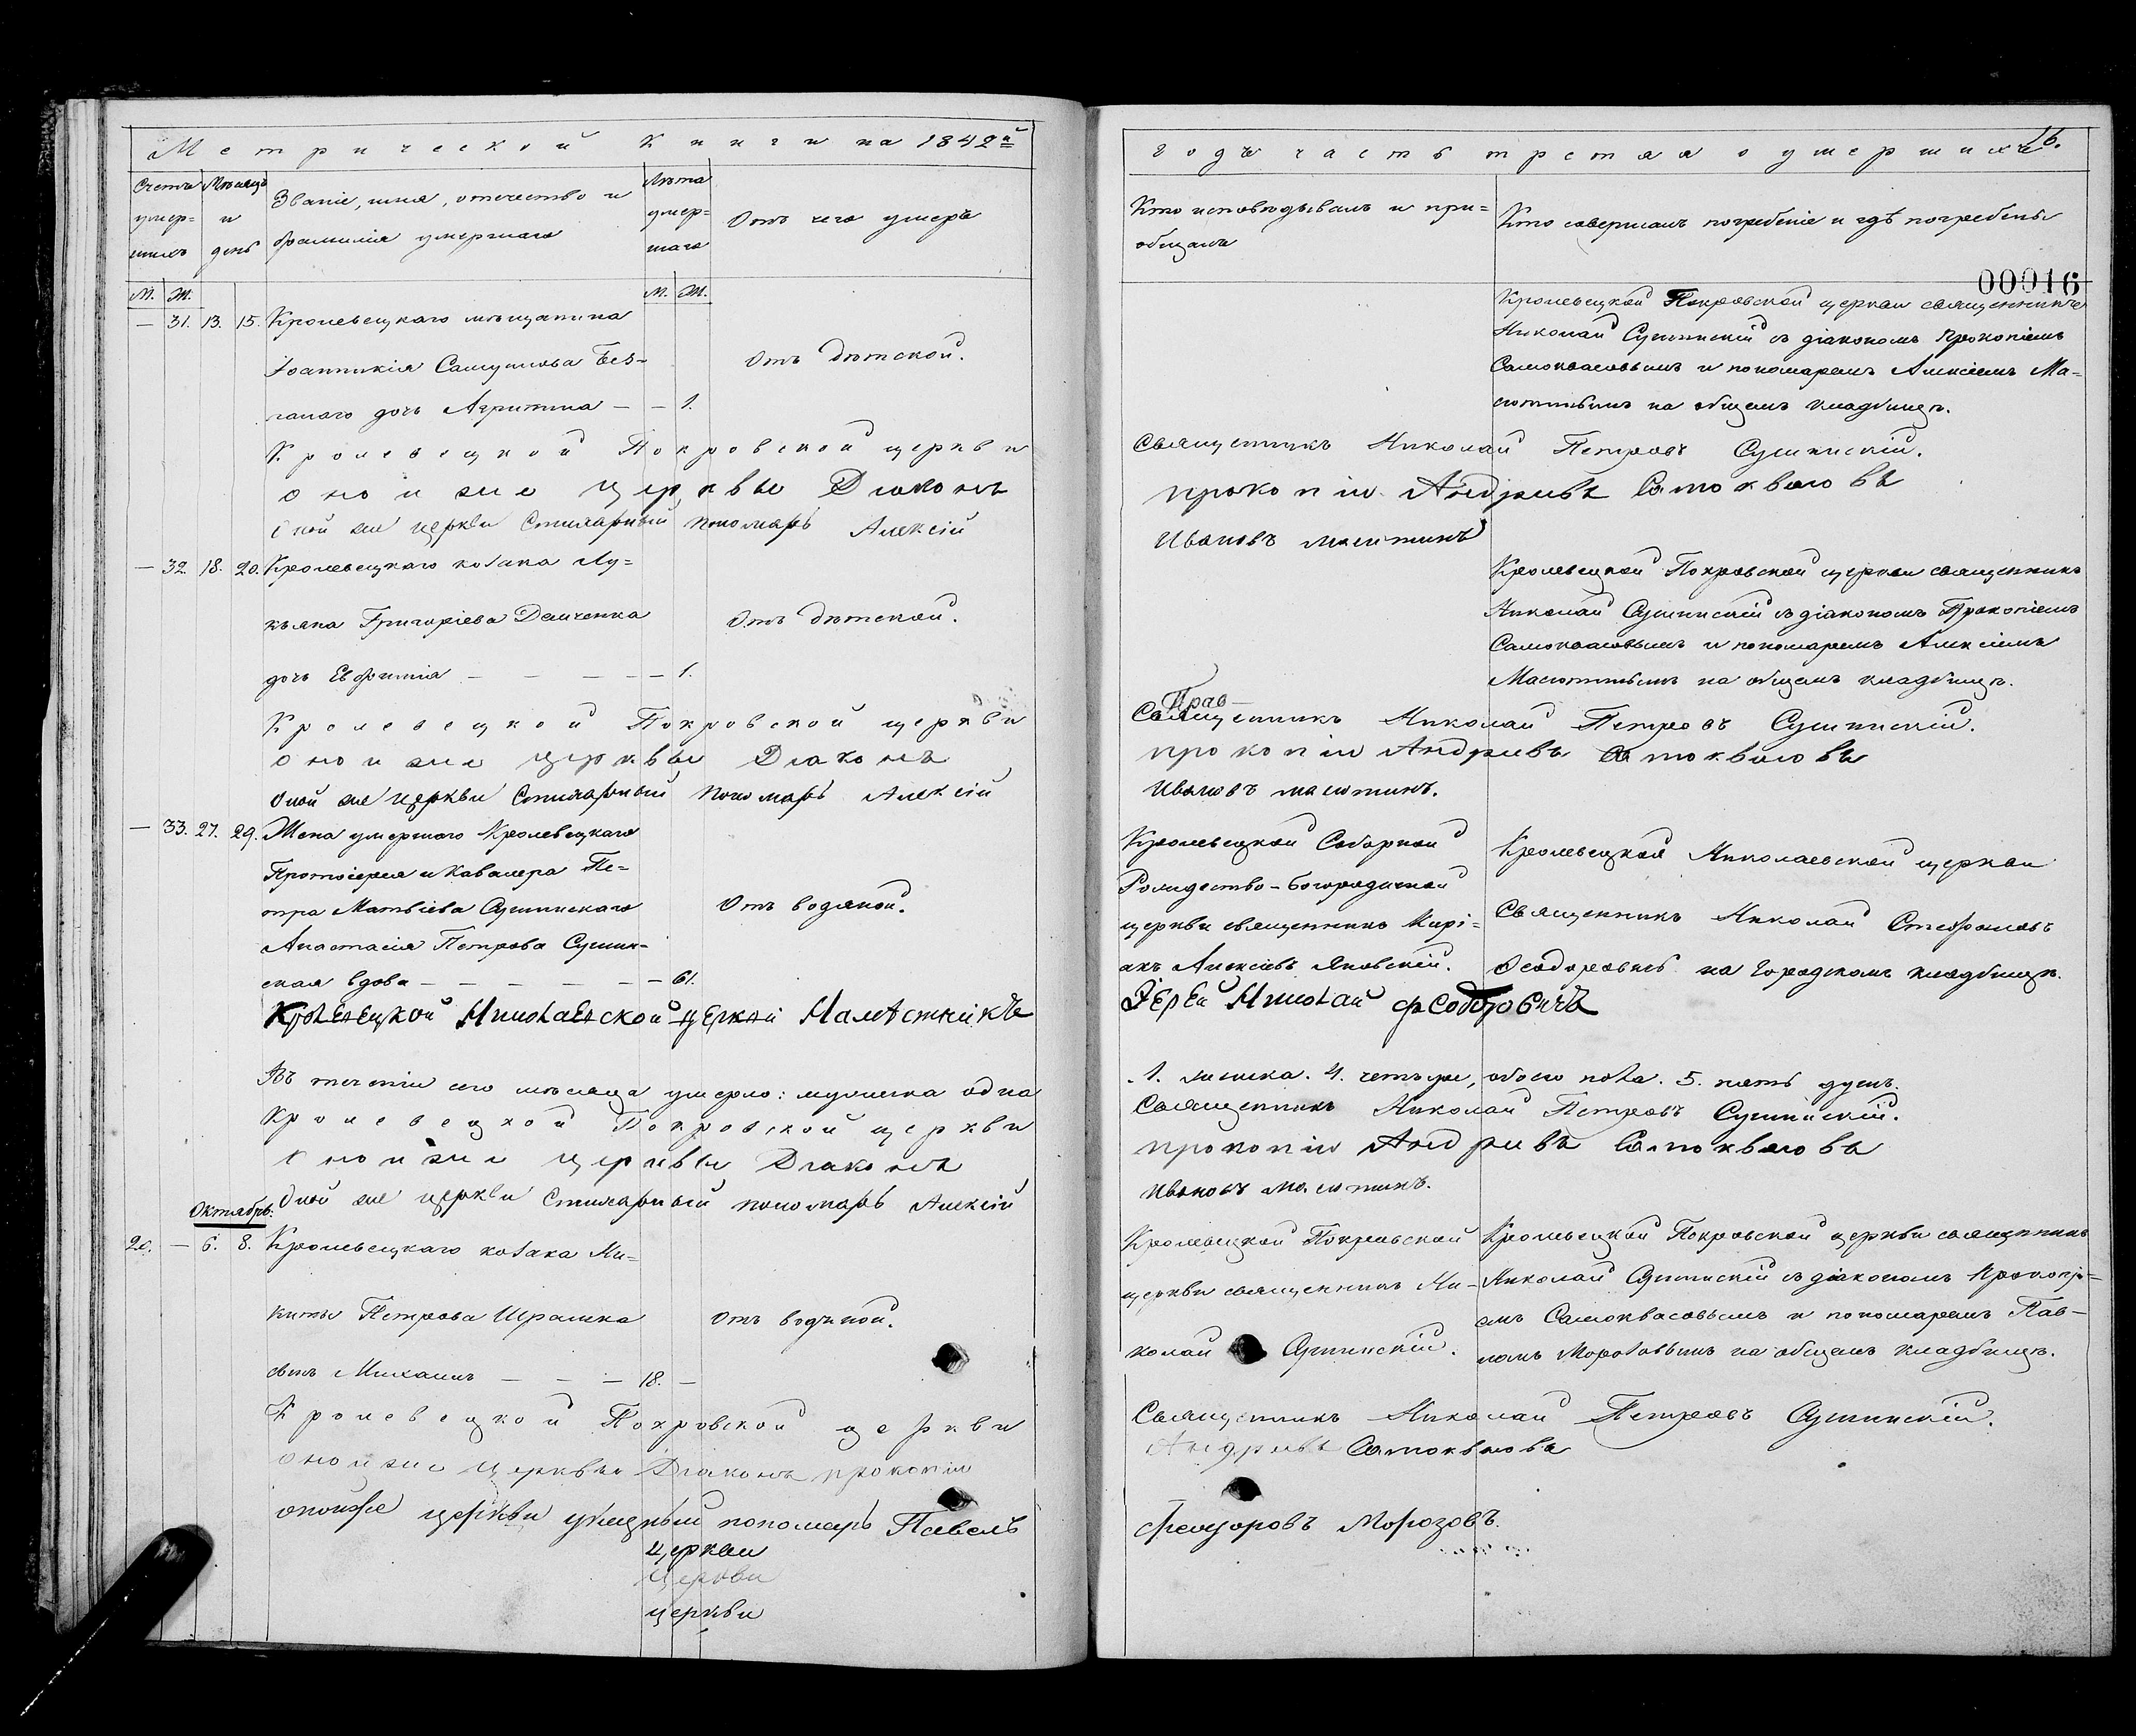 Метрической Книги на 1842й
Счетъ умер= шихъ
Мѣсяцъ и день
Званіе, имя, отечество и
фамилія умершаго
Лѣта умер= шаго
Отъ чего умеръ
М. Ж.
М. Ж.
— 31. 13. 15. Кролевецкаго мѣщанина
Іоанникія Самуилова Без=
ланого дочь Агрипина — — 1.
Отъ дѣтской.
Кролевецкой Покровской церкви
оной же церквы Діаконъ
Оной же церкви Стихарный пономарь Алексій
— 32. 18. 20. Кролевецкаго козака Лу=
кьяна Григоріева Демченка
дочь Евфимія — — — — 1.
Отъ дѣтской.
Кролевецкой Покровской церкви
оной же церквы Діаконъ
Оной же церкви Стихарный пономарь Алексій
— 33. 27. 29. Жена умершаго Кролевецкаго
Протоіерея и Кавалера Пе=
тра Матвіева Сушинскаго
Анастасія Петрова Сушин=
ская вдова — — — — — — 61.
Отъ водяной.
Кролевецкой Николаевской церкви Намѣстникъ
Въ теченіи сего мѣсяца умерло: мужеска одна
Кролевецкой Покровской церкви
Оной же церквы Діаконъ
Оной же церкви Стихарный пономарь Алексій
Октябрь.
20. — 6. 8. Кролевецкаго козака Ни=
киты Петрова Ирашка
сынъ Михаилъ — — — 18. —
Отъ водяной.
Кролевецкой Покровской церкви
оной же церквы Діаконъ прокопій
оной же церкви указный пономарь Павелъ
церкви
церкви
церкви
16.
годъ часть третяя о умершихъ
Кто исповѣдывалъ и при=
общалъ
Кто совершалъ погребеніе и гдѣ погребены
00016
Кролевецкой Покровской церкви священникъ
Николай Сушинскій съ діакономъ Прокопіемъ
Самоквасовымъ и пономаремъ Алексіемъ Ма=
сютинымъ на общемъ кладбищѣ.
Священникъ Николай Петровъ Сушинскій.
прокопій Андріивъ Самоквасовъ
Ивановъ масютинъ
Кролевецкой Покровской церкви священникъ
Николай Сушинскій съ діакономъ Прокопіемъ
Самоквасовымъ и пономаремъ Алексіемъ
Масютинымъ на общемъ кладбищѣ.
Священникъ Николай Петровъ Сушинскій.
прокопій Андріивъ Самоквасовъ
Ивановъ масютинъ.
Кролевецкой Соборной
Рождество-Богородичной
церкви священникъ Кирі=
акъ Алексіевъ Яновскій.
Кролевецкой Николаевской церкви
Священникъ Николай Стефановъ
Ѳеодоровичь на городскомъ кладбищѣ.
Іерей Николай Феодоровичъ
1. женска. 4. четыре, обоего пола. 5. пять душъ.
Священникъ Николай Петровъ Сушинскій.
прокопій Андріивъ Самоквасовъ
Ивановъ масютинъ.
Кролевецкой Покровской
церкви священникъ Ни-
колай Сушинскій.
Кролевецкой Покровской церкви священникъ
Николай Сушинскій съ діакономъ Прокопі=
емъ Самоквасовымъ и пономаремъ Пав-
ломъ Морозовымъ на общемъ кладбищѣ.
Священникъ Николай Петровъ Сушинскій.
Андріивъ Самоквасовъ
Феодоровъ Морозовъ.